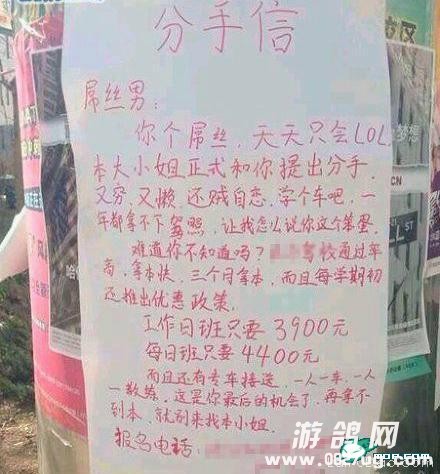 分手信
屌丝男：
你个屌丝，天天只会LOL，
本大小姐正式和你提出分手，
又穷，又懒 还贼自恋，学个车吧，一
年都拿不下驾照，让我怎么说你这个笨蛋，
难道你不知道吗？驾校通过年
高，拿本快，三个月拿本，而且每学期初
还推出优惠政策。
工作日班只要3900元
每日班只要4400元
而且还有专车接送，一人一车，一人
一教练，这是你最后的机会了，再拿不
到本，就别来找本小姐。
报名电话：
CN
ST
游鸽网